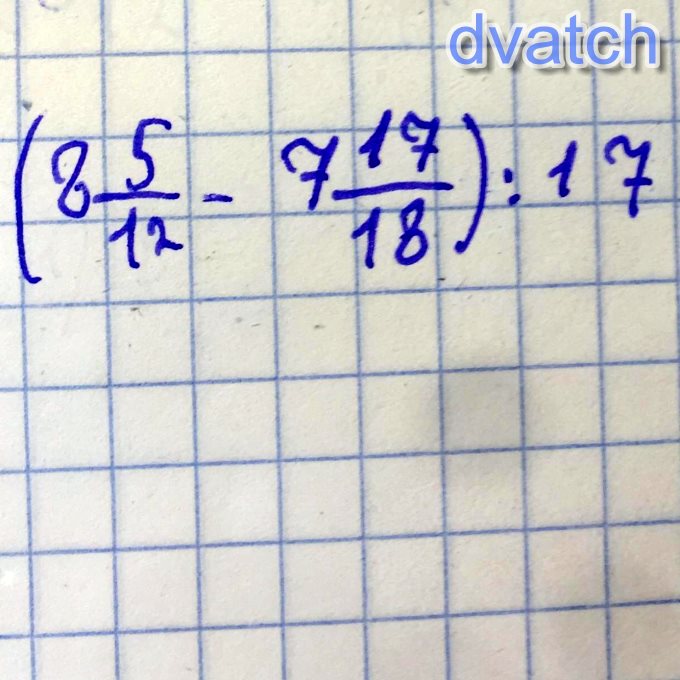 dvatch
(8 5/12 - 7 17/18) : 17